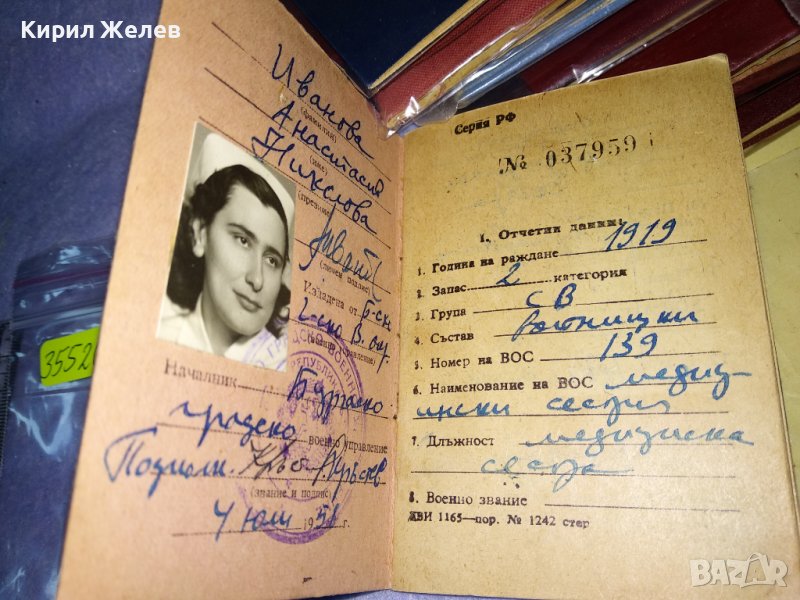 Кирил Желев
Иванова
(фамилия)
Анастасия
(име)
Николова
(презиме)
(личен подпис)
Издадена от Б-ск
(военно управление)
Началник Бургаско
градско военно управление
Подполк.
(звание и подпис)
4 юли 195 г.
3552
Серия РФ
№ 037959
I. Отчетни данни:
1. Година на раждане 1919
2. Запас 2 категория
3. Група СВ
4. Състав войнишки
5. Номер на ВОС 139
6. Наименование на ВОС медиц-
ински сестри
7. Длъжност медицинска
сестра
8. Военно звание
ДВИ 1165—пор. № 1242 стер
BAZAR